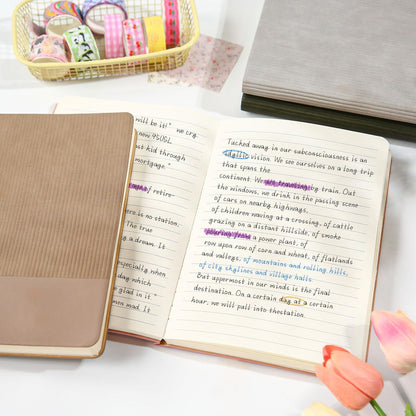 will be!" we cry.
now 450SL
ast kid through
mortgage."
of retire-
ere is no station.
The true
a dream. It
especially when
day which
e glad in it."
men mad. It
Tucked away in our subconsciousness is an
idyllic vision. We see ourselves on a long trip
that spans the
continent. We are traveling by train. Out
the windows, we drink in the passing scene
of cars on nearby highways,
of children waving at a crossing, of cattle
grazing on a distant hillside, of smoke
pouring from a power plant, of
row upon row of corn and wheat, of flatlands
and valleys, of mountains and rolling hills,
of city skylines and village halls.
But uppermost in our minds is the final
destination. On a certain day at a certain
hour, we will pull into thestation.